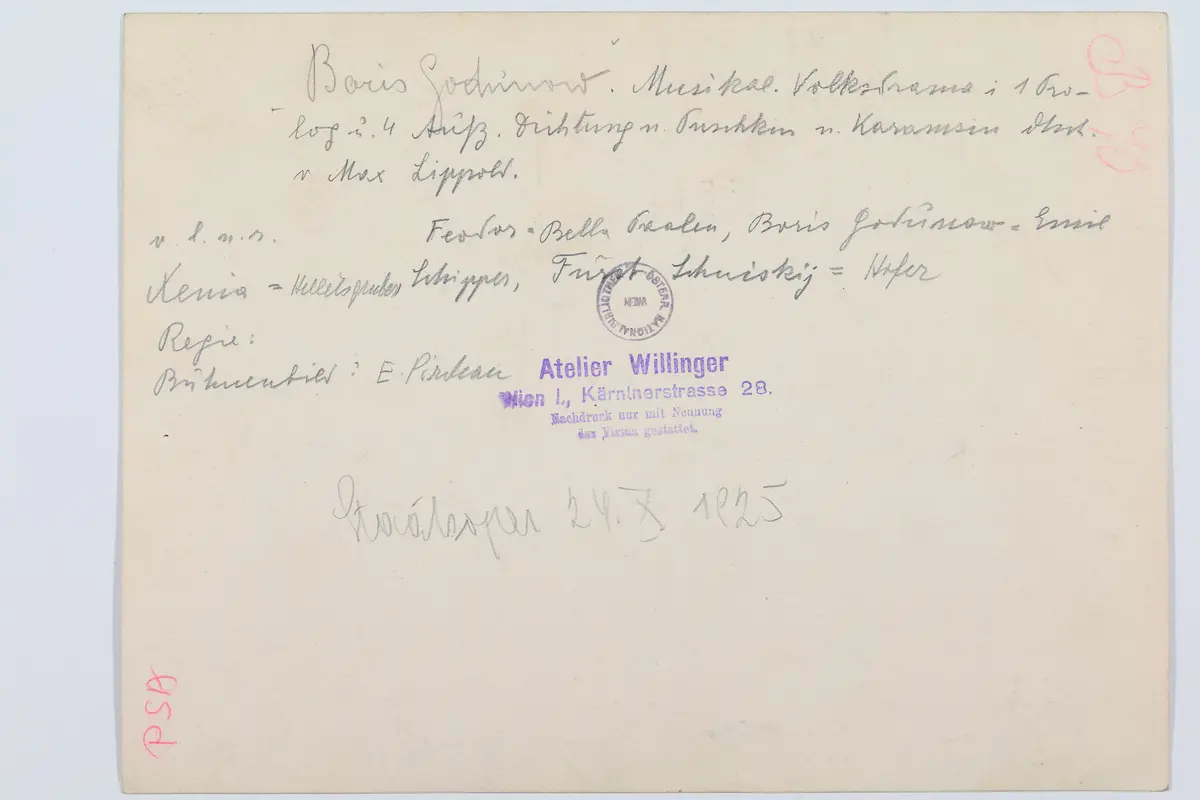 Boris Godunow. Musikal. Volksdrama i 1 Pro-
log u. 4 Aufz. Dichtung n. Puschkin u. Karamsin dtsch.
v Max Lippold.
v. l. n. r. Feodor = Bella Paalen, Boris Godunow = Emil
Xenia = Helletsgruber Schipper, Fürst Schuiskij = Hofer
Regie:
Bühnenbild: E. Pirchan
ÖSTERR. NATIONALBIBLIOTHEK
WIEN
Atelier Willinger
Wien I., Kärntnerstrasse 28.
Nachdruck nur mit Nennung
der Firma gestattet.
Staatsoper 24. X. 1925
PSA